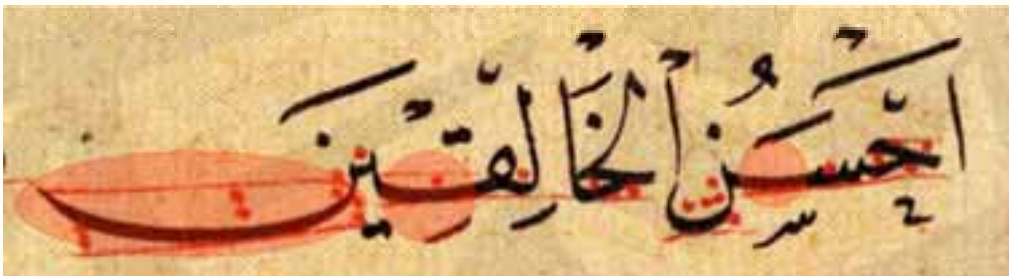 اَحْسَنُ الْخَالِقِينَ